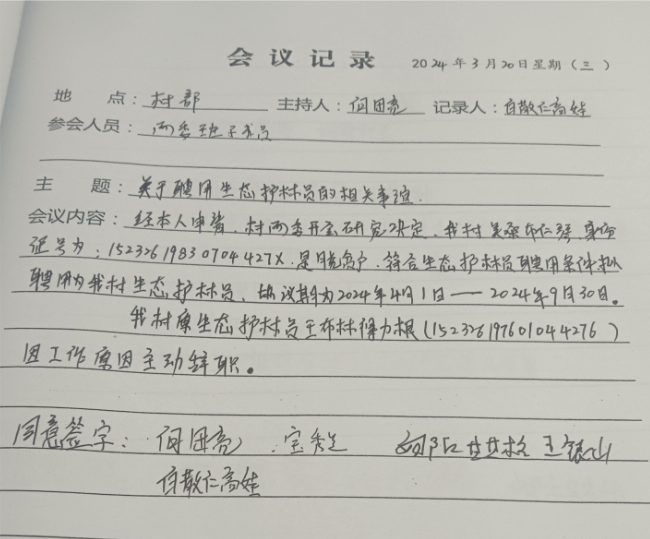 会议记录 2024年3月20日星期(三)
地 点：村部 主持人：何田亮 记录人：白散仁高娃
参会人员：两委班子成员
主 题：关于聘用生态护林员的相关事宜.
会议内容：经本人申请，村两委开会研究决定，我村 身份
证号为：15232619830704427X.是脱贫户，符合生态护林员聘用条件拟
聘用为我村生态护林员，协议期为2024年4月1日——2024年9月30日。
我村原生态护林员王布林得力根(152326197601044276)
因工作原因主动辞职。
同意签字：何田亮 宝 王银山
白散仁高娃